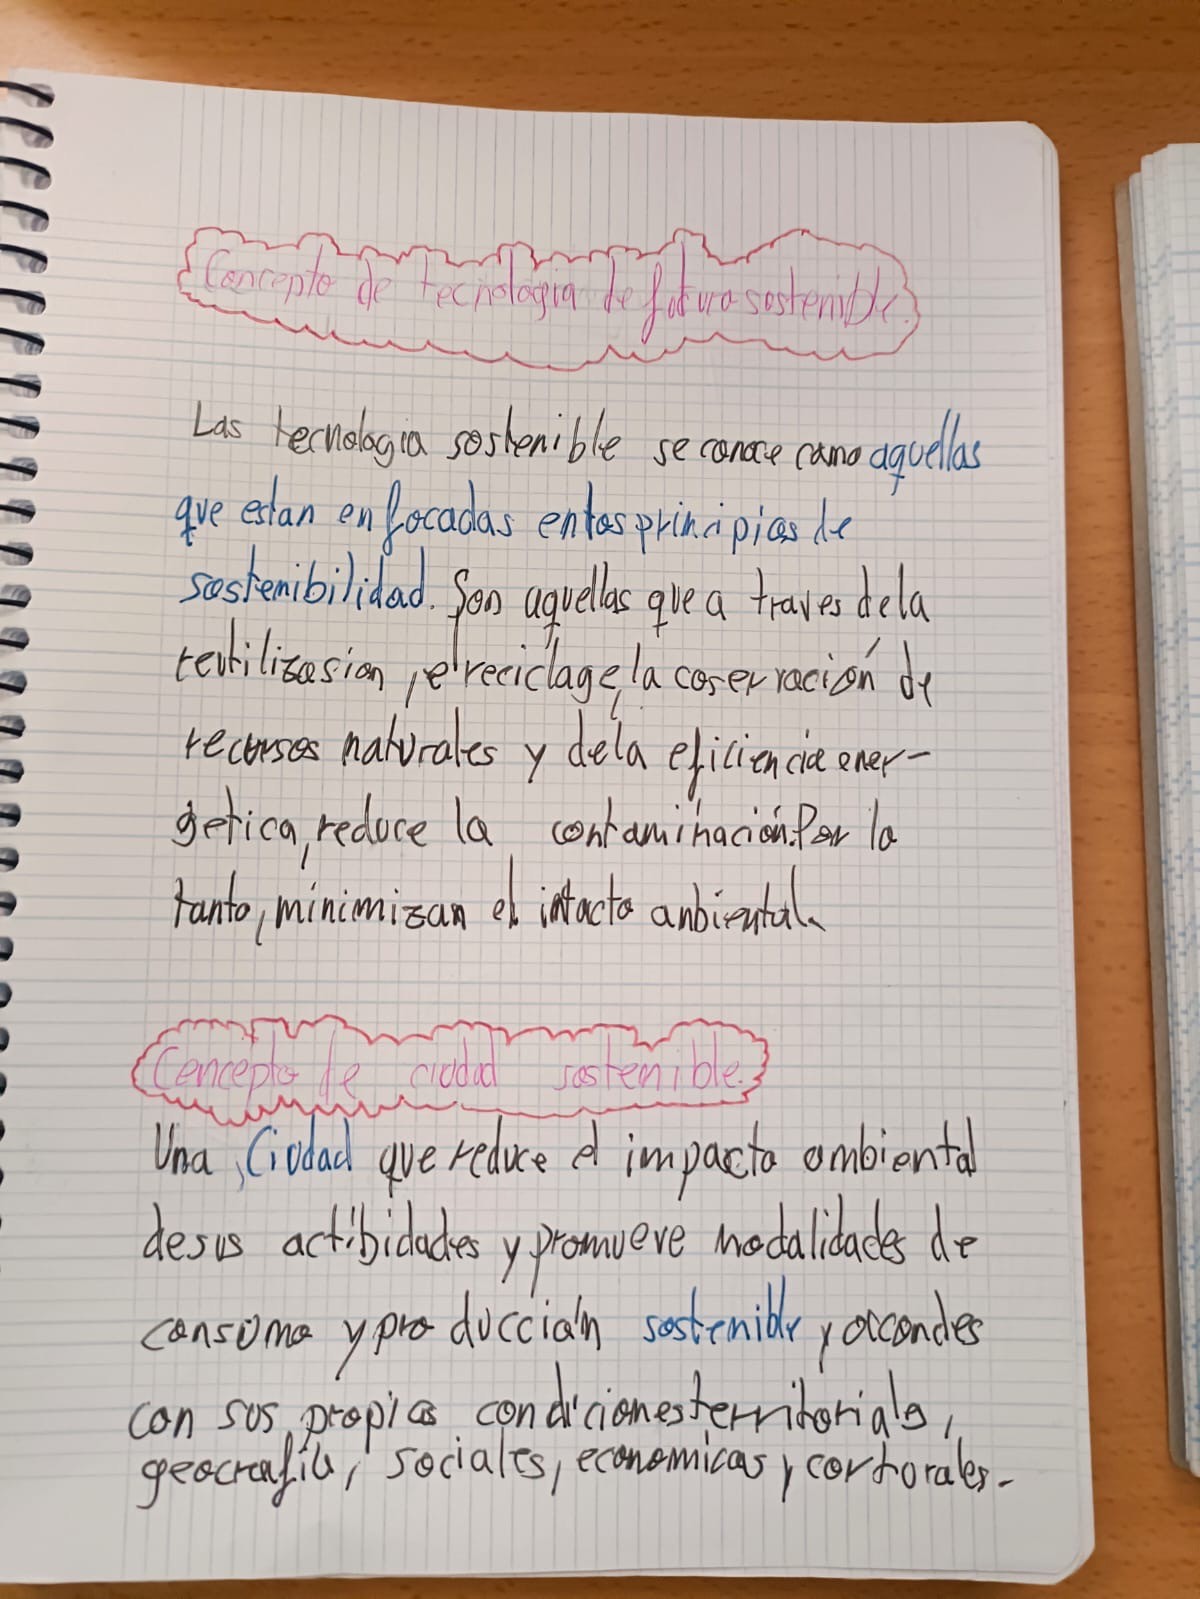 Concepto de tecnologia de futuro sostenible.
Las tecnologia sostenible se conoce como aquellas
que estan enfocadas en los principios de
sostenibilidad. Son aquellas que a traves de la
reutilizasion, el reciclage, la coservación de
recursos naturales y de la eficiencia ener-
getica, reduce la contaminación. Por lo
tanto, minimizan el intacto anbiental.
Concepto de ciudad sostenible.
Una Ciudad que reduce el impacto ambiental
de sus actibidades y promueve modalidades de
consumo y producción sostenible y accondes
con sus propias condiciones territoriales,
geocrafia, sociales, economicas y cortorales.